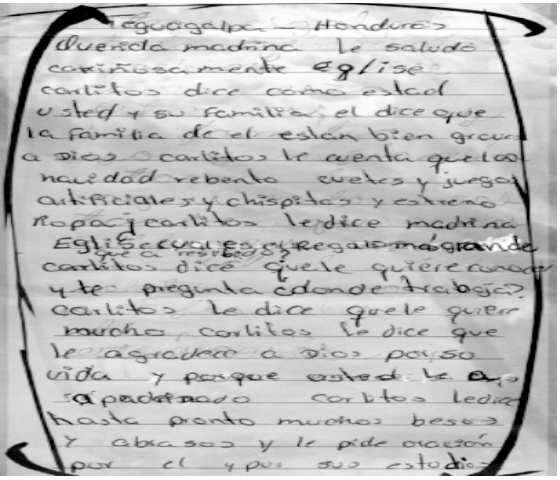 Tegucigalpa - Honduras
Querida madrina le saluda
cariñosamente Eglise
carlitos dice como estad
usted y su familia, el dice que
la familia de el estan bien gracia
a Dios carlitos le cuenta que la
navidad rebento cuetes y juego
artificiales y chispitas y estreno
Ropa y carlitos le dice madrina
Eglise cual es el Regalo mas grande
que a resibido?
carlitos dice que le quiere conocer
y te pregunta ¿donde trabaja?
carlitos le dice que le quiere
mucho, carlitos le dice que
le agradece a Dios por su
vida y porque usted le a
apadrinado carlitos le dice
hasta pronto muchos besos
Y abrasos y le pide oración
por el y por sus estudios